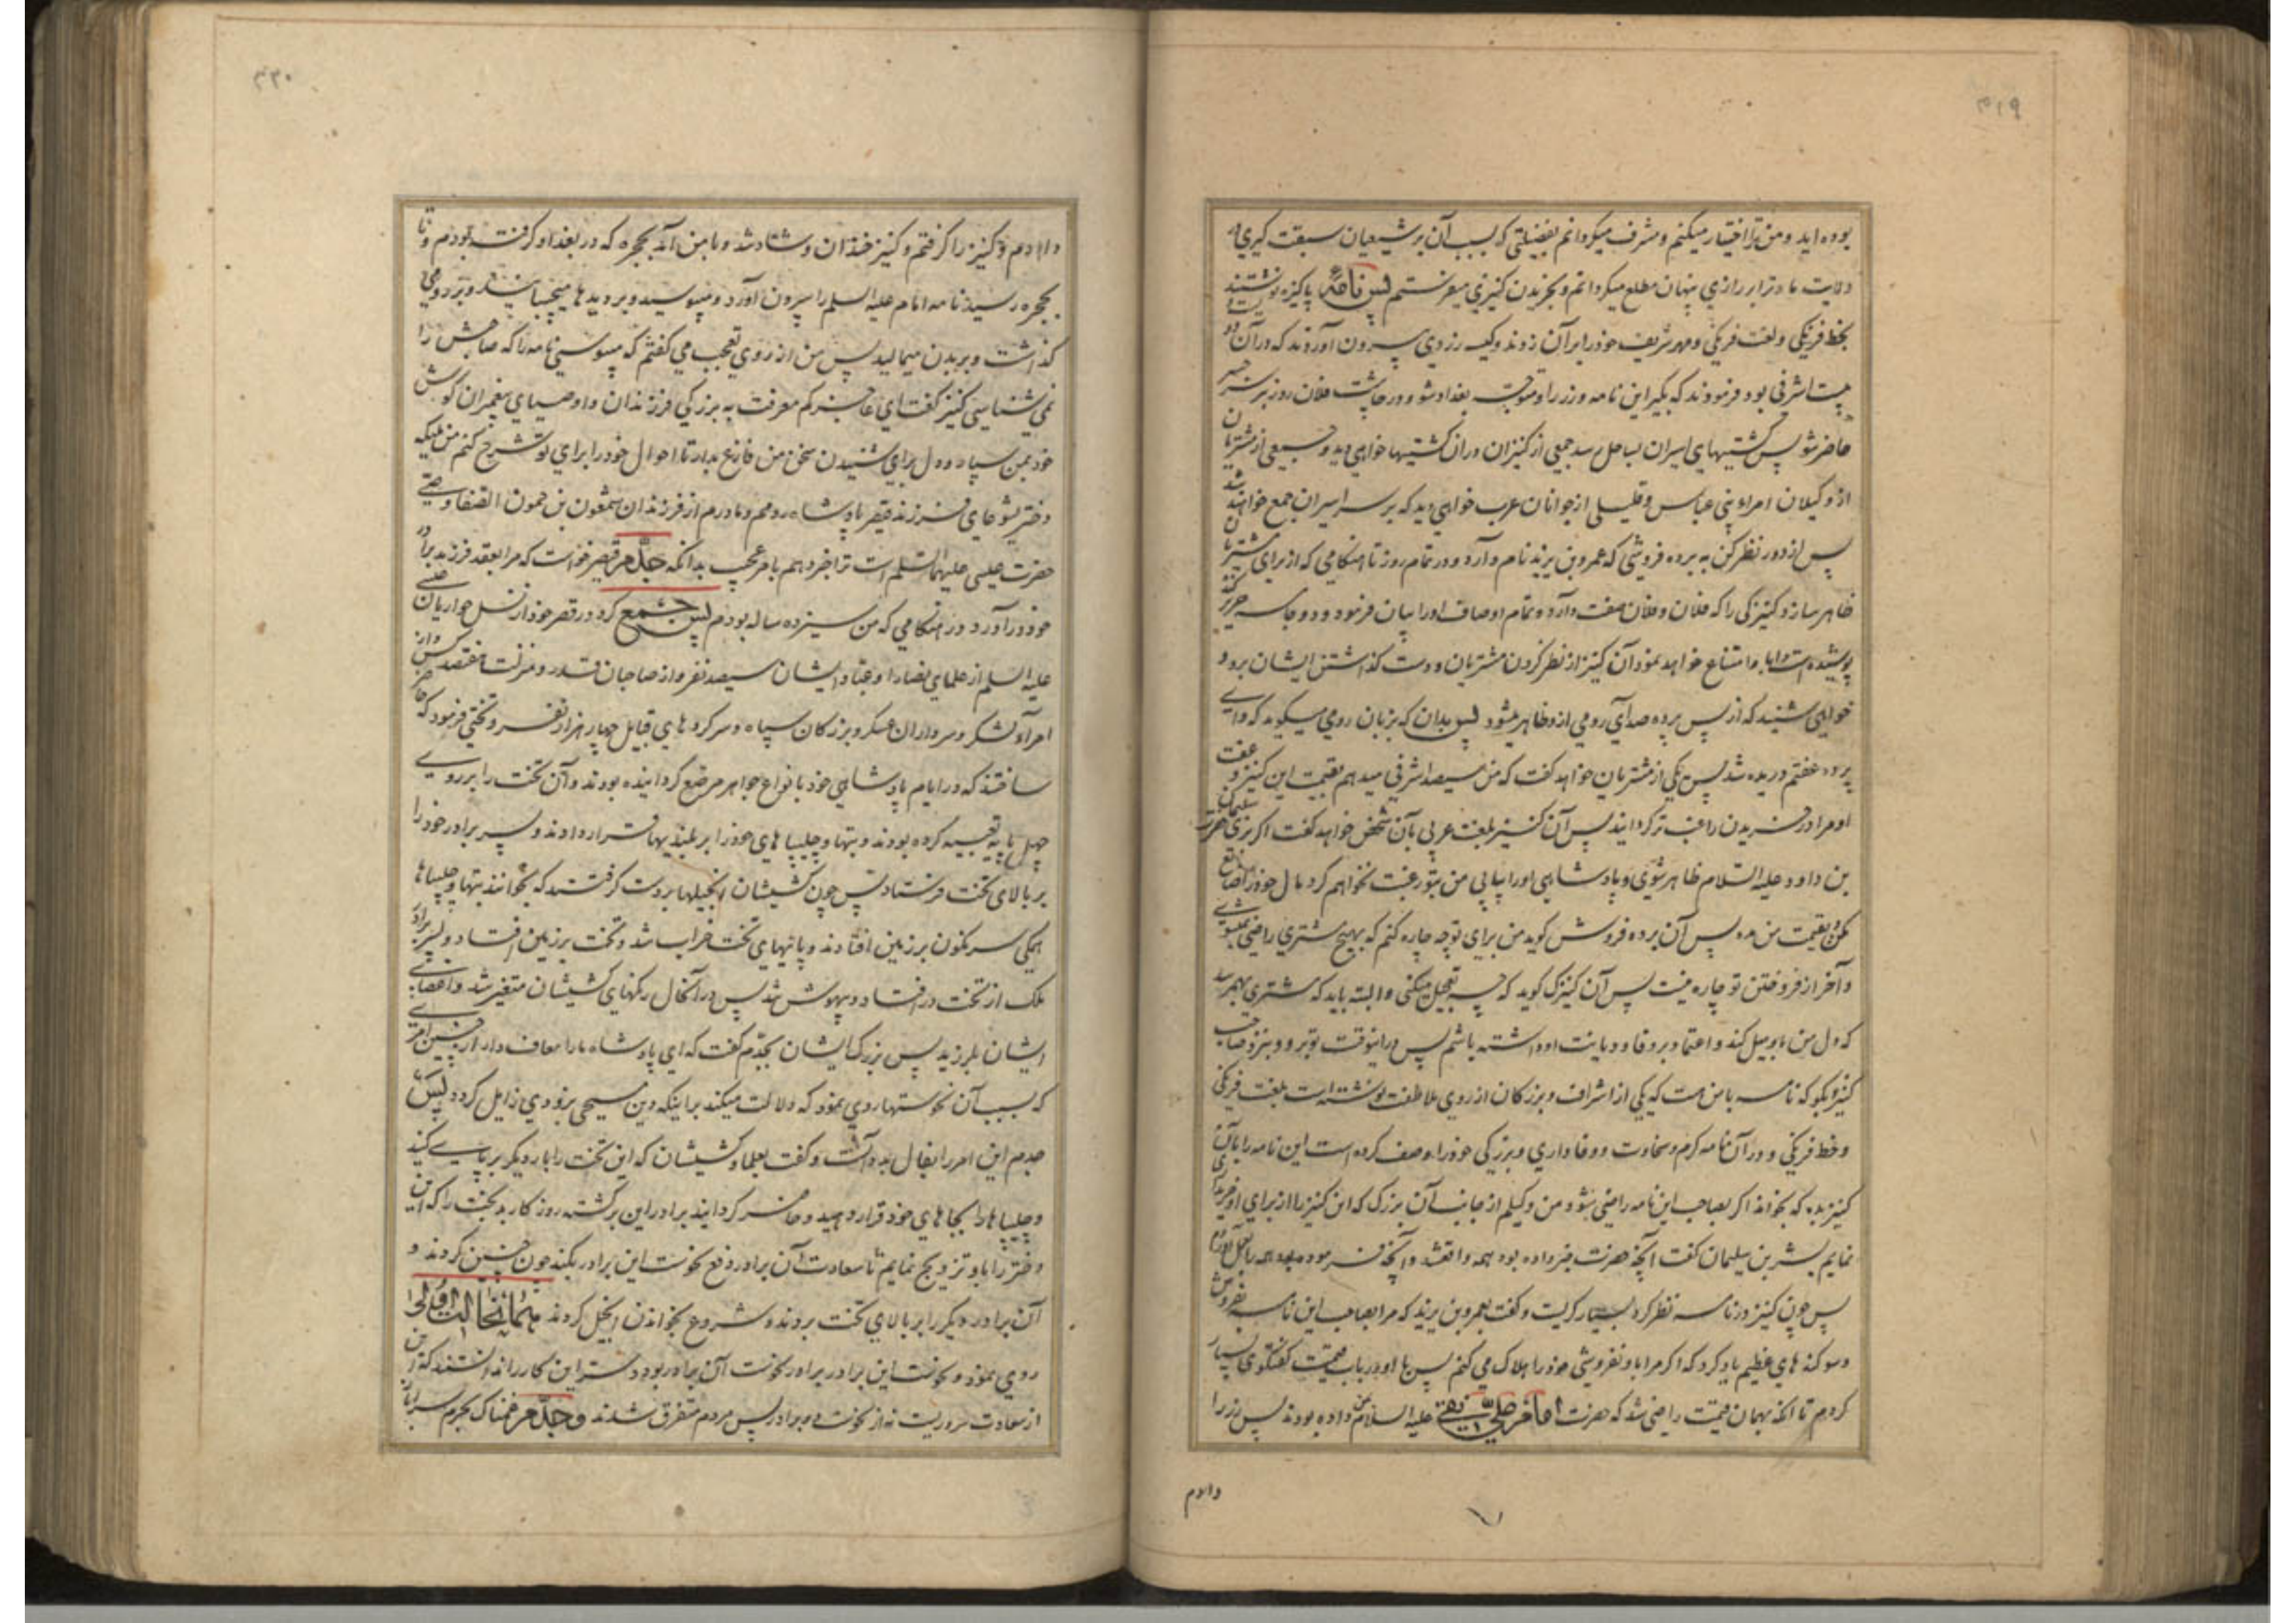 ۴۱۹
بوده اید و من ترا اختیار میکنم و مشرف میگردانم بفضیلتی که بسبب آن بر شیعیان سبقت گیری در
ولایت ما و ترا بر رازی پنهان مطلع میگردانم و بخریدن کنیزی میفرستم پس نامهٔ پاکیزه نوشتند
بخط فرنگی و لغت فرنگی و مهر شریف خود را بر آن زدند و کیسه زری بیرون آوردند که در آن دو
بیست اشرفی بود فرمودند که بگیر این نامه و زر را و متوجه بغداد شو و در چاشت فلان روز بر سر جسر
حاضر شو پس کشتیهای اسیران بساحل رسد جمعی از کنیزان در آن کشتیها خواهی دید و جمعی از مشتریان
از وکیلان امراء بنی عباس و قلیلی از جوانان عرب خواهی دید که بر سر اسیران جمع خواهند شد
پس از دور نظر کن به برده فروشی که عمرو بن یزید نام دارد و در تمام روز تا هنگامی که از برای مشتریان
ظاهر سازد کنیزکی را که فلان و فلان صفت دارد و تمام اوصاف او را بیان فرمود و دو جامه حریر کنده
پوشیده است و ابا و امتناع خواهد نمود آن کنیز از نظر کردن مشتریان و دست گذاشتن ایشان برو و
خواهی شنید که از پس پرده صدای رومی ازو ظاهر میشود پس بدان که بزبان رومی میگوید که وای
پرده عفتم دریده شد پس یکی از مشتریان خواهد گفت که من سیصد اشرفی میدهم بقیمت این کنیز و عفت
او مرا در خریدن راغب تر گردانید پس آن کنیز بلغت عربی بآن شخص خواهد گفت اگر بزی حضرت سلیمان
بن داود علیه السلام ظاهر شوی و پادشاهی او را بیابی من بتو رغبت نخواهم کرد مال خود را ضایع
مکن و بقیمت من مده پس آن برده فروش گوید من برای تو چه چاره کنم که بهیچ مشتری راضی نمیشوی
و آخر از فروختن تو چاره نیست پس آن کنیزک گوید که چه تعجیل میکنی و البته باید که مشتری بهم رسد
که دل من باو میل کند و اعتماد بر وفا و دیانت او داشته باشم پس در اینوقت تو برو و بنزد صاحب
کنیز و بگو که نامه با من هست که یکی از اشراف و بزرگان از روی ملاطفت نوشته است بلغت فرنگی
و خط فرنگی و در آن نامه کرم و سخاوت و وفاداری و بزرگی خود را وصف کرده است این نامه را بآن
کنیز بده که بخواند اگر بصاحب این نامه راضی بشود من وکیلم از جانب آن بزرگ که این کنیز را از برای او خریداری
نمایم بشر بن سلیمان گفت آنچه حضرت خبر داده بود همه واقع شد و آنچه فرموده بود همه بعمل آوردم
پس چون کنیز در نامه نظر کرد بسیار گریست و گفت بعمرو بن یزید که مرا بصاحب این نامه بفروش
و سوگندهای عظیم یاد کرد که اگر مرا باو نفروشی خود را هلاک می کنم پس با او در باب قیمت گفتگوی بسیار
کردم تا آنکه بهمان قیمت راضی شد که حضرت امام علی نقی علیه السلام بمن داده بودند پس زر را
دادم
۴۲۰
دادم و کنیز را گرفتم و کنیز خندان و شاد شد و با من آمد بحجره که در بغداد گرفته بودم و تا
بحجره رسید نامه امام علیه السلم را بیرون آورد و میبوسید و بر دیدها میچسبانید و بر روی
گذاشت و بر بدن میمالید پس من از روی تعجب می گفتم که میبوسی نامه را که صاحبش را
نمی شناسی کنیز گفت ای عاجز کم معرفت به بزرگی فرزندان و اوصیای پیغمبران گوش
خود بمن سپار و دل برای شنیدن سخن من فارغ بدار تا احوال خود را برای تو شرح کنم من ملیکه
دختر یشوعای فرزند قیصر پادشاه رومم و مادرم از فرزندان شمعون بن حمون الصفا وصی
حضرت عیسی علیهما السلم است ترا خبر دهم بامر عجیب بدانکه جدم قیصر خواست که مرا بعقد فرزند برادر
خود در آورد در هنگامی که من سیزده ساله بودم پس جمع کرد در قصر خود از نسل حواریان عیسی
علیه السلم از علمای نصارا و عباد ایشان سیصد نفر و از صاحبان قدر و منزلت هفتصد کس و از
امرآء لشکر و سرداران عسکر و بزرگان سپاه و سرکردهای قبایل چهار هزار نفر و تختی فرمود که حاضر
ساختند که در ایام پادشاهی خود بانواع جواهر مرصع گردانیده بودند و آن تخت را بر روی
چهل پایه تعبیه کرده بودند و بتها و چلیپاهای خود را بر بلندیها قرار دادند و پسر برادر خود را
بر بالای تخت فرستاد پس چون کشیشان انجیلها بر دست گرفتند که بخوانند بتها و چلیپاها
همگی سرنگون بر زمین افتادند و پایهای تخت خراب شد و تخت بر زمین افتاد و پسر برادر
ملک از تخت در افتاد و بیهوش شد پس در آنحال رنگهای کشیشان متغیر شد و اعضای
ایشان بلرزید پس بزرگ ایشان بجدم گفت که ای پادشاه ما را معاف دار از چنین امری
که بسبب آن نحوستها روی نمود که دلالت میکند بر اینکه دین مسیحی بزودی زایل گردد پس
جدم این امر را بفال بد دانست و گفت بعلما و کشیشان که این تخت را بار دیگر بر پای کنید
و چلیپاها را بجاهای خود قرار دهید و حاضر گردانید برادر این برگشته روزگار بدبخت را که این
دختر را باو تزویج نمایم تا سعادت آن برادر دفع نحوست این برادر بکند چون چنین کردند و
آن برادر دیگر را بر بالای تخت بردند و شروع بخواندن انجیل کردند همان حالت اولی
روی نمود و نحوست این برادر برابر نحوست آن برادر بود و سر این کار را ندانستند که این
از سعادت سروریست نه از نحوست دو برادر پس مردم متفرق شدند و جدم غمناک بحرم سرا باز